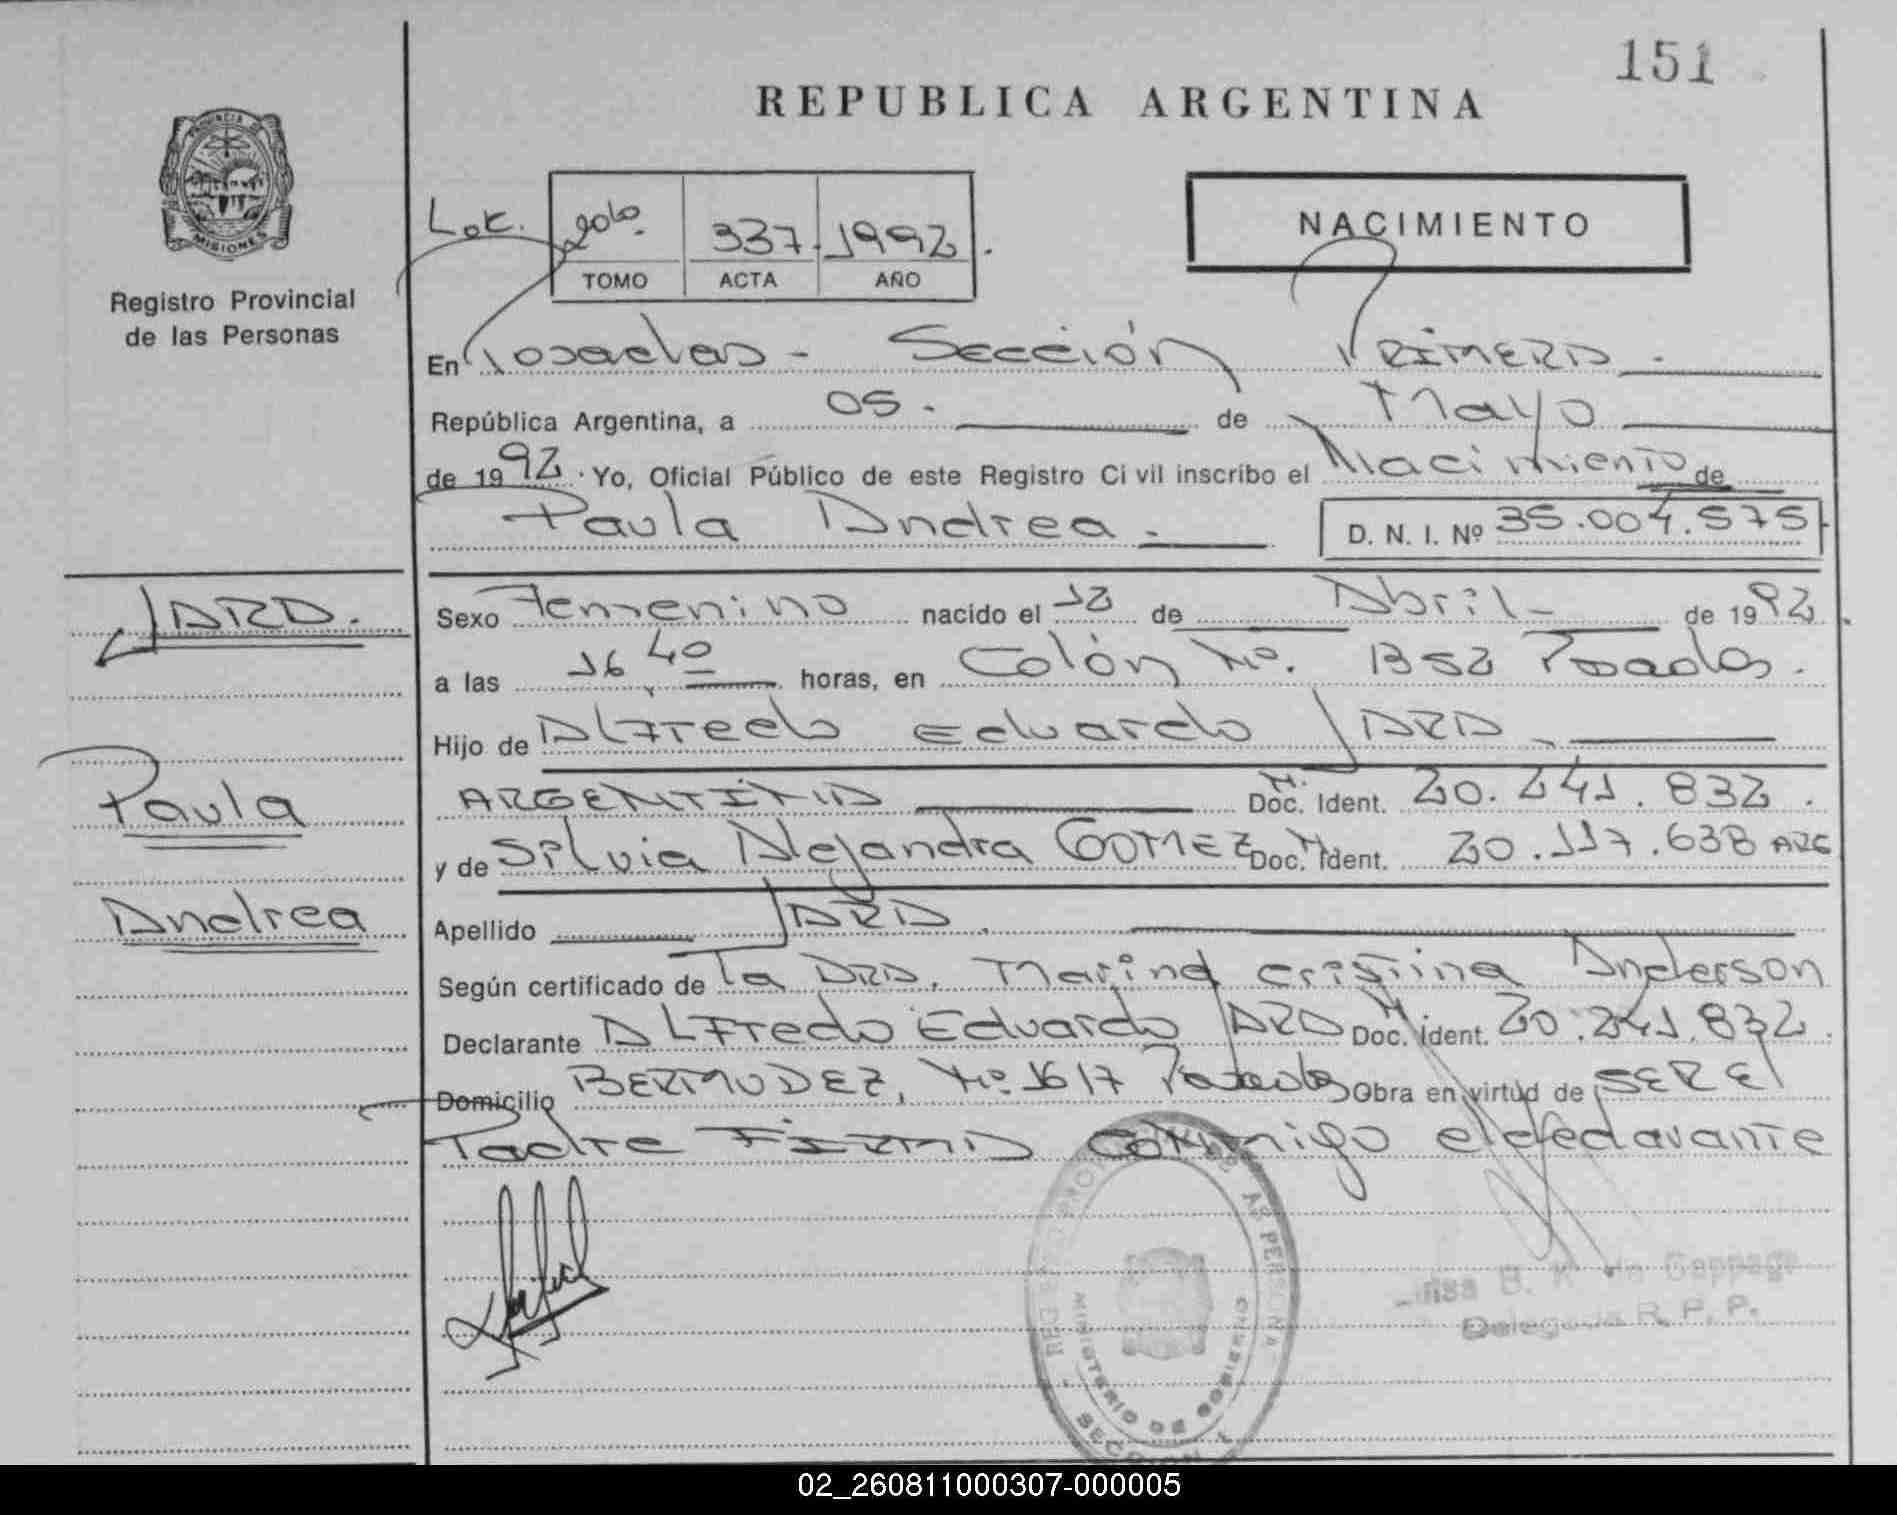 151
REPUBLICA ARGENTINA
PROVINCIA DE
MISIONES
Registro Provincial
de las Personas
TOMO
337
ACTA
1992
AÑO
NACIMIENTO
En Posadas - Sección Primera
República Argentina, a 05. de Mayo
de 1992. Yo, Oficial Público de este Registro Civil inscribo el Nacimiento de
Paula Andrea.
D. N. I. Nº 35.004.575
JARA.
Paula
Andrea
Sexo Femenino nacido el 12 de Abril de 1992
a las 16,40 horas, en Colón Nº. 1352 Posadas.
Hijo de Alfredo Eduardo JARA
ARGENTINA M. Doc. Ident. 20.241.832.
y de Silvia Alejandra GOMEZ M. Doc. Ident. 20.117.638 ARG
Apellido JARA.
Según certificado de la DRA. Marina Cristina Anderson
Declarante Alfredo Eduardo JARA M. Doc. Ident. 20.241.832.
Domicilio BERMUDEZ, Nº 1617 Posadas Obra en virtud de SER El
Padre FIRMA Conmigo
MINISTERIO DE GOBIERNO
R. P. P.
02_260811000307-000005